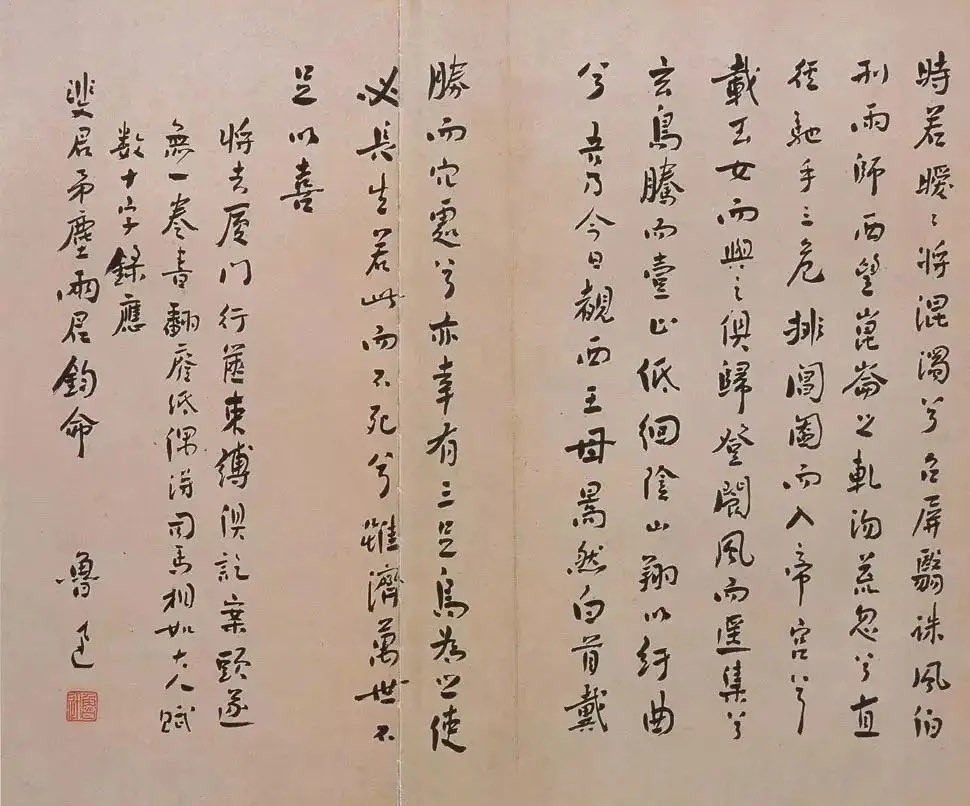 時若曖々將混濁兮召屏翳誅風伯
刑雨師西望崑崙之軋沕荒忽兮直
徑馳乎三危排閶闔而入帝宮兮
載玉女而與之俱歸登閬風而遥集兮
玄鳥騰而壹止低徊陰山翔以紆曲
兮吾乃今日覩西王母暠然白首戴
勝而穴處兮亦幸有三足烏為之使
必長生若此而不死兮雖濟萬世不
足以喜
將去厦门行篋束縛俱訖案頭遂
無一卷書翻廢紙偶得司馬相如大人賦
數十字錄應
斐君矛塵兩君鈞命 魯迅